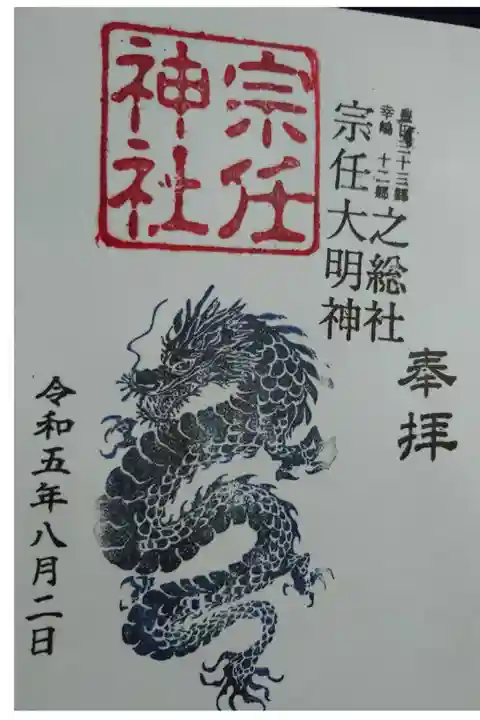 奉拝
豊田 三十三郷
幸嶋 十二郷
之総社
宗任大明神
宗任
神社
令和五年八月二日